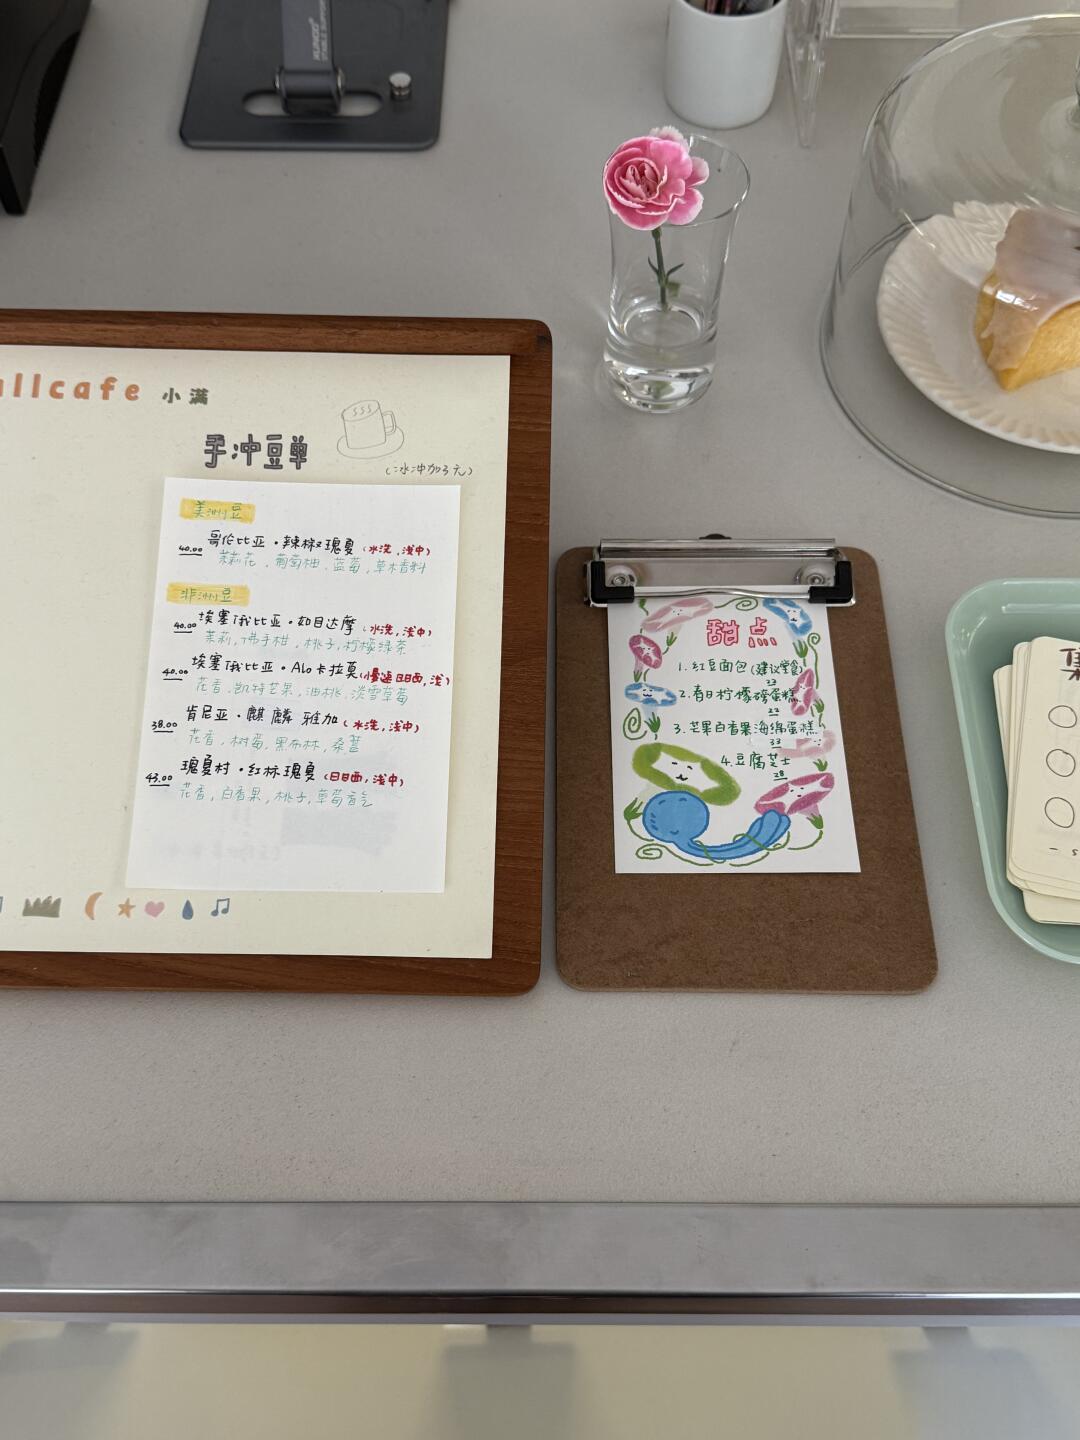 allcafe 小满
手冲豆单
(冰冲加3元)
美洲豆
40.00 哥伦比亚·辣椒瑰夏 (水洗,浅中)
茉莉花、葡萄柚、蓝莓、草木香料
非洲豆
40.00 埃塞俄比亚·如目达摩 (水洗,浅中)
茉莉,佛手柑、桃子,柠檬绿茶
40.00 埃塞俄比亚·Alo卡拉莫(慢速日日西,浅)
花香、凯特芒果,油桃,淡雪草莓
38.00 肯尼亚·麒麟雅加 (水洗,浅中)
花香,树莓,黑布林,桑葚
43.00 瑰夏村·红标瑰夏 (日日西,浅中)
花香,百香果,桃子,草莓香气
甜点
1.红豆面包(建议堂食)
23
2.春日柠檬磅蛋糕
22
3.芒果百香果海绵蛋糕
33
4.豆腐芝士
28
集